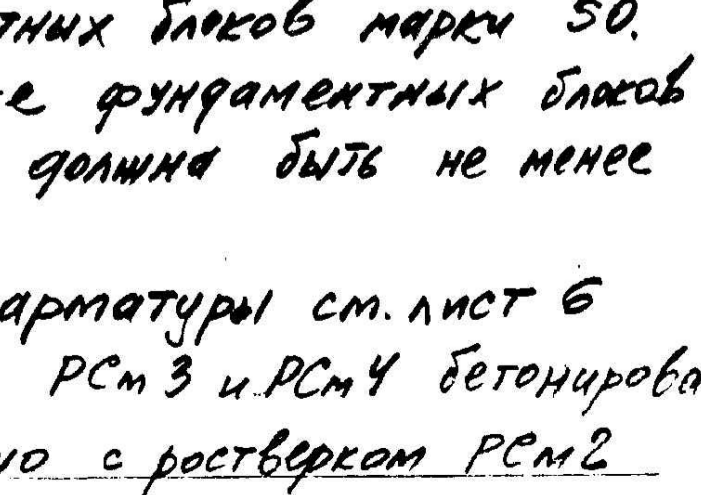 тных блоков марки 50.
е фундаментных блоков
должна быть не менее
арматуры см. лист 6
РСм 3 и РСм 4 бетонирова
но с ростверком РСм 2